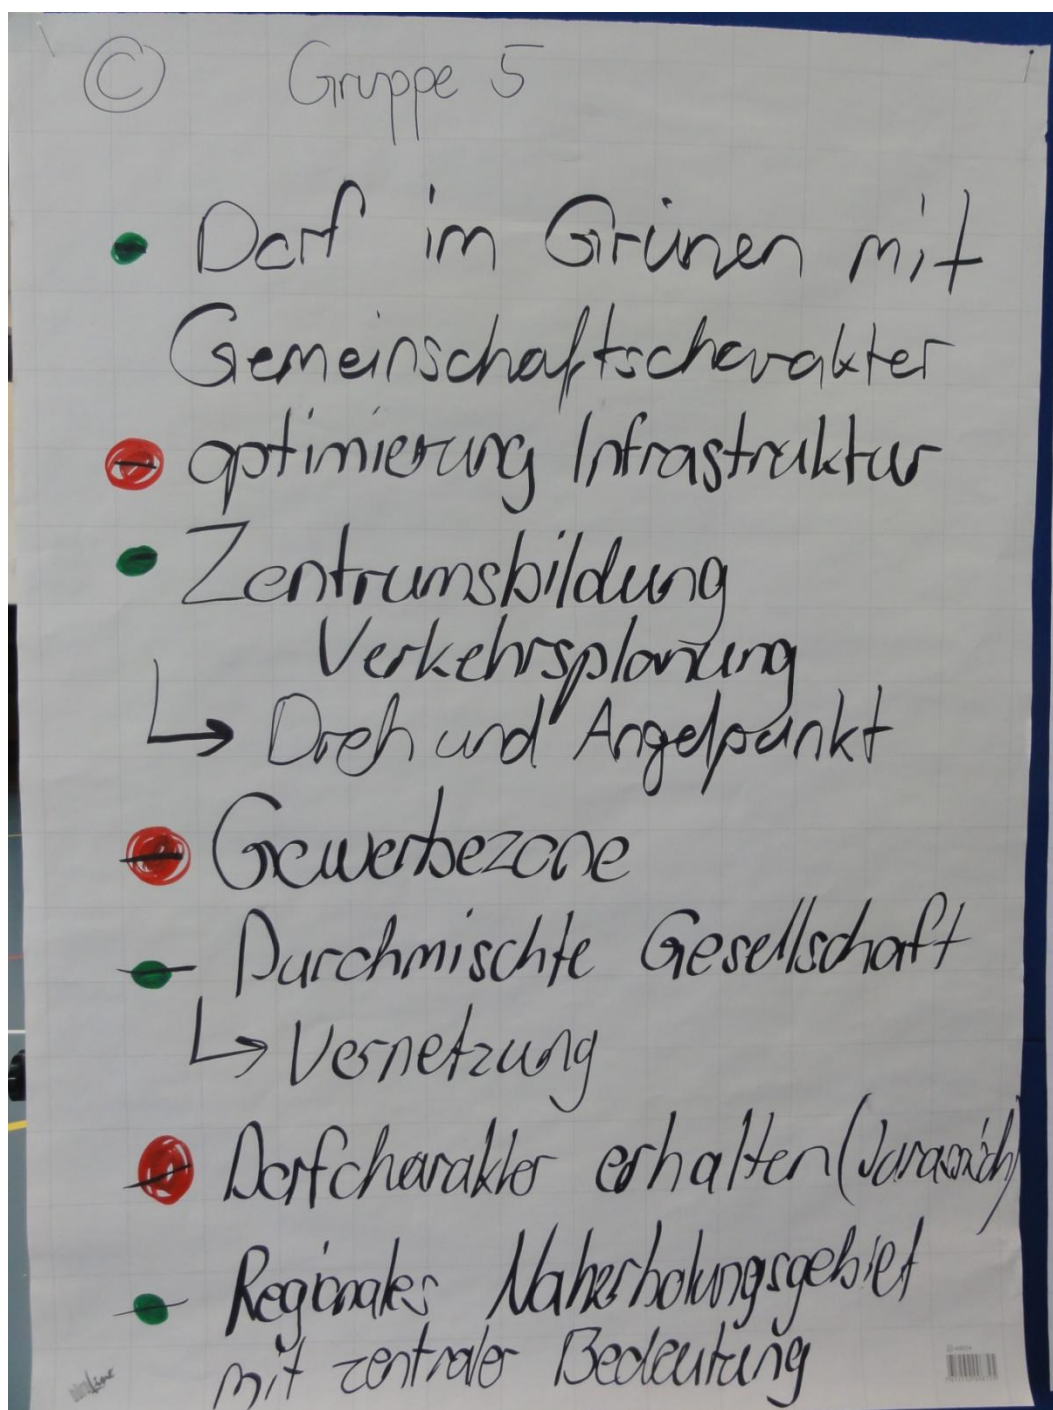 © Gruppe 5
Dorf im Grünen mit
Gemeinschaftscharakter
optimierung Infrastruktur
Zentrumsbildung
Verkehrsplanung
↳ Dreh und Angelpunkt
Gewerbezone
Durchmischte Gesellschaft
↳ Vernetzung
Dorfcharakter erhalten
Regionales Naherholungsgebiet
mit zentraler Bedeutung